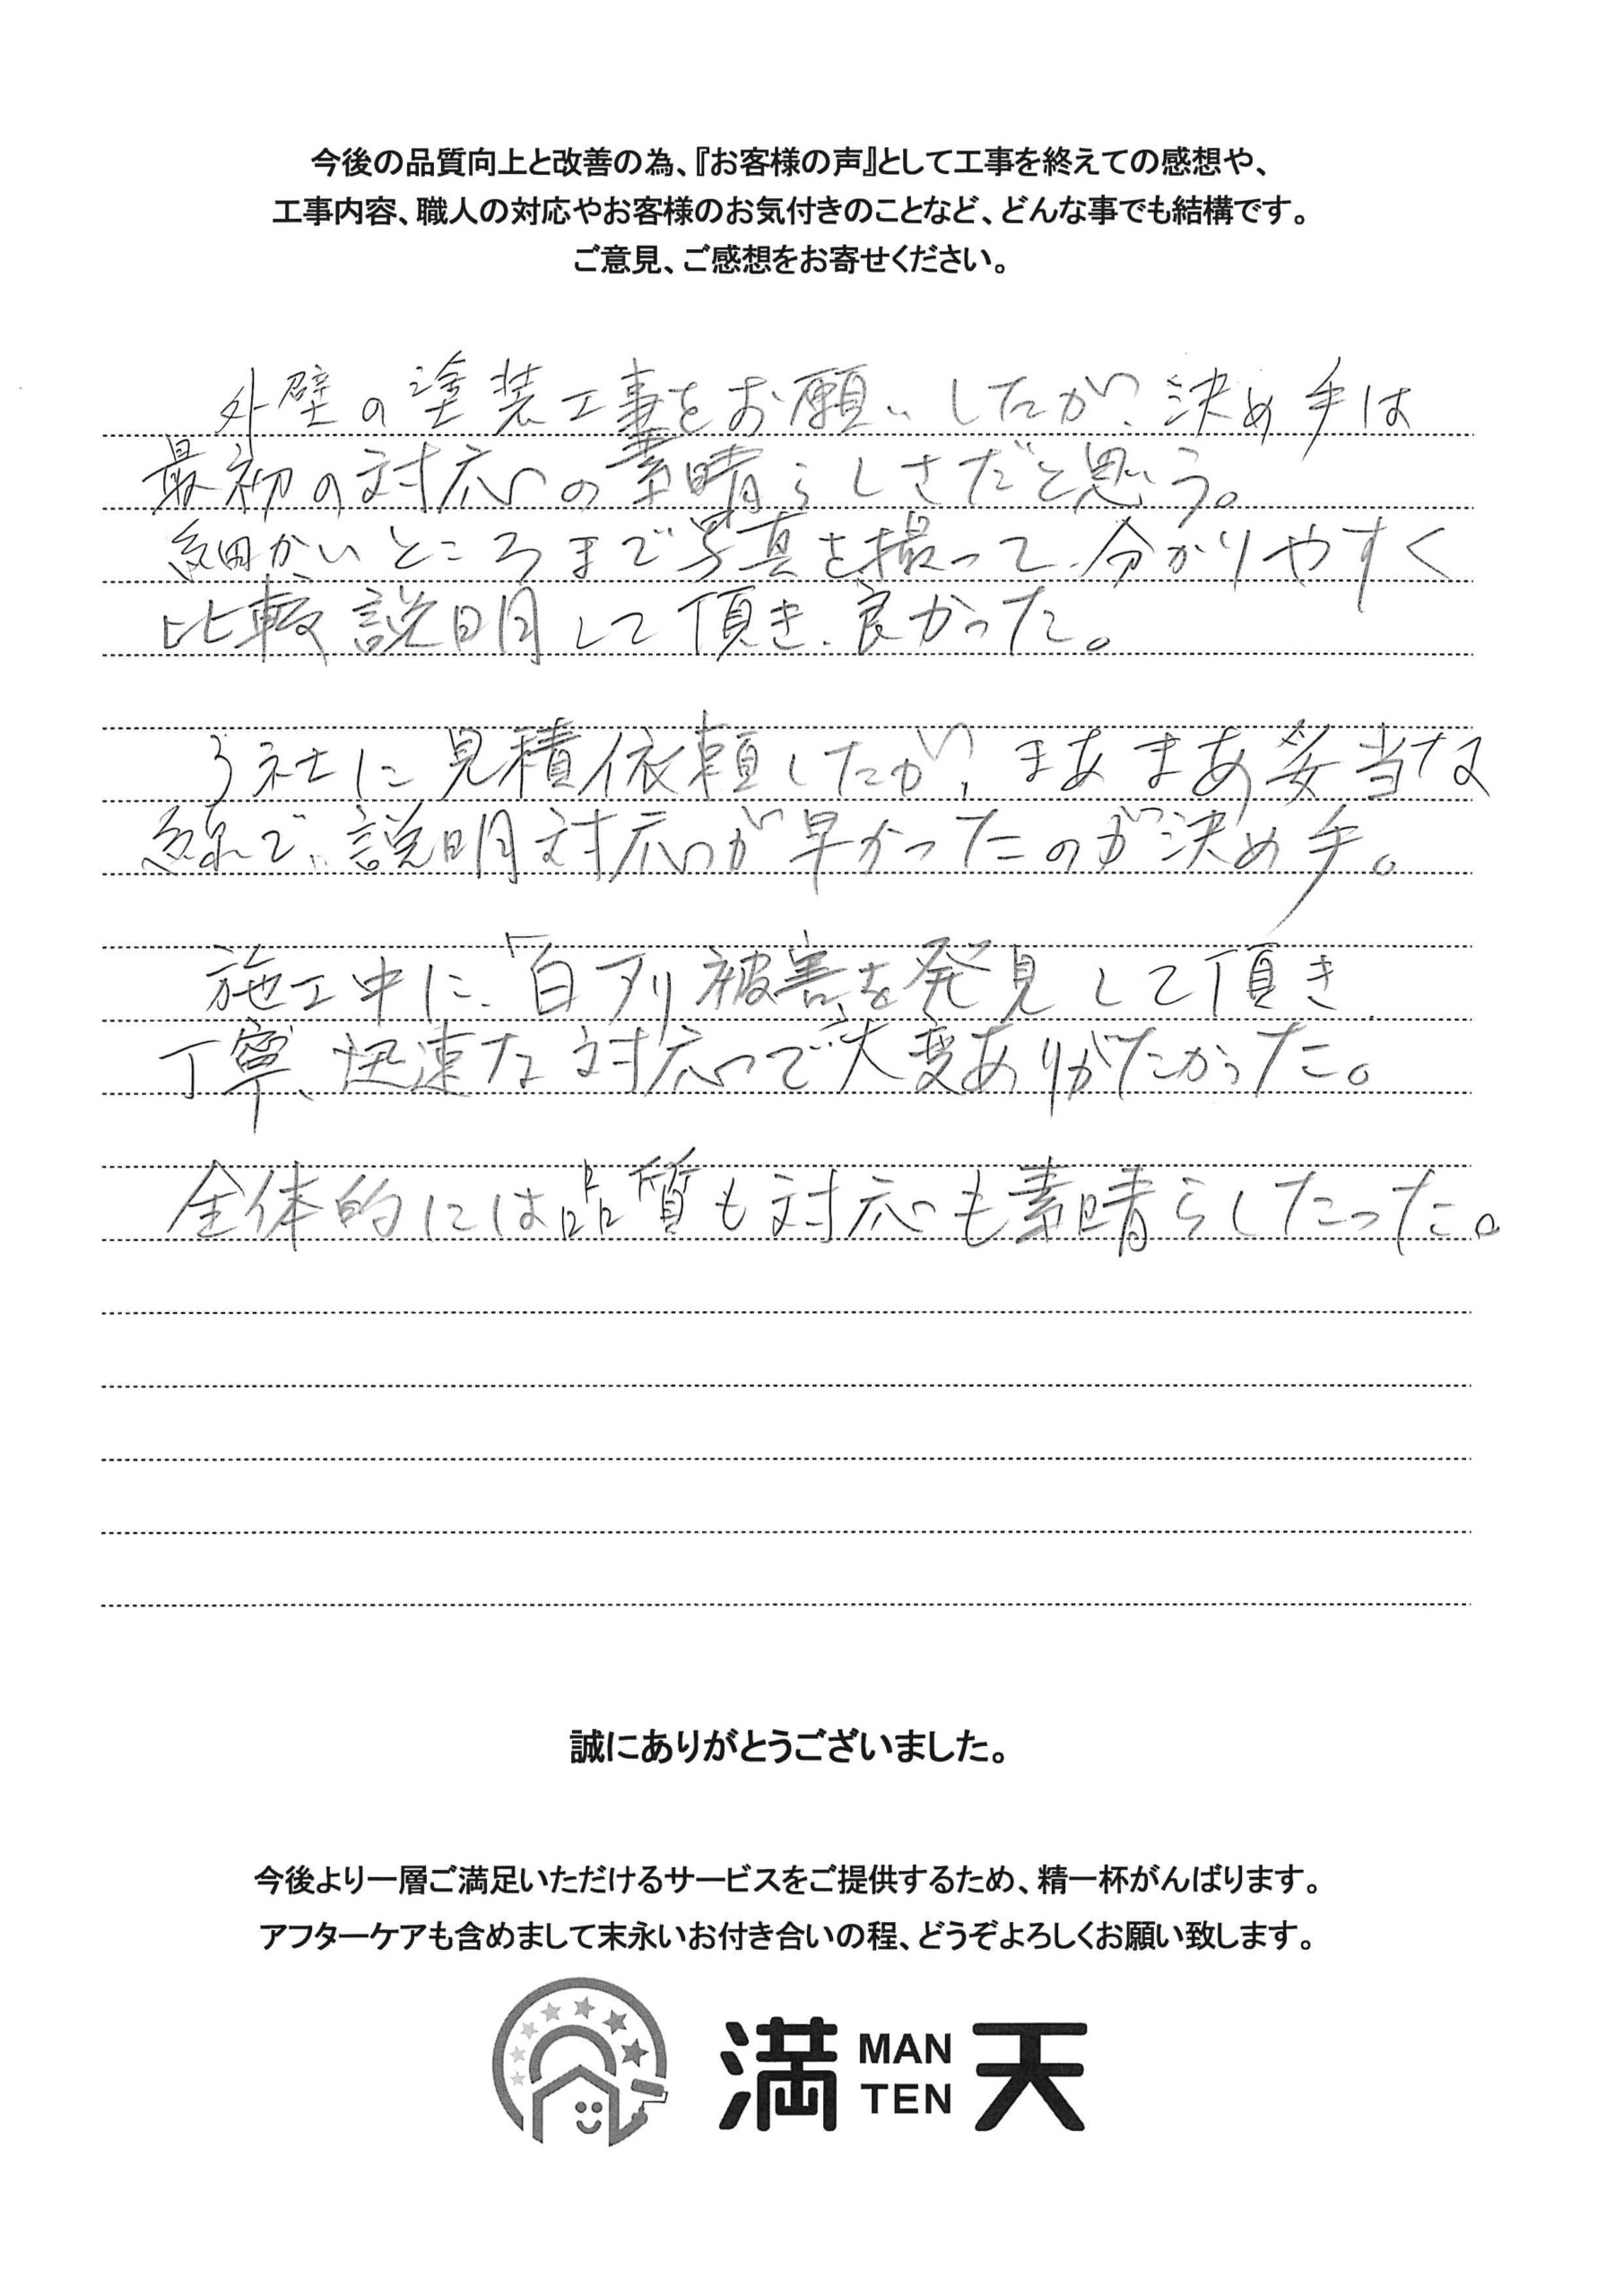 今後の品質向上と改善の為、『お客様の声』として工事を終えての感想や、
工事内容、職人の対応やお客様のお気付きのことなど、どんな事でも結構です。
ご意見、ご感想をお寄せください。
外壁の塗装工事をお願いしたが、決め手は
最初の対応の素晴らしさだと思う。
細かいところまで写真を撮って、分かりやすく
比較説明して頂き、良かった。
3社に見積依頼したが、まあまあ妥当な
線で、説明対応が早かったのが決め手。
施工中に、「白アリ被害を発見して頂き、
丁寧、迅速な対応で大変ありがたかった。
全体的には品質も対応も素晴らしたった。
誠にありがとうございました。
今後より一層ご満足いただけるサービスをご提供するため、精一杯がんばります。
アフターケアも含めまして末永いお付き合いの程、どうぞよろしくお願い致します。
満 MAN TEN 天